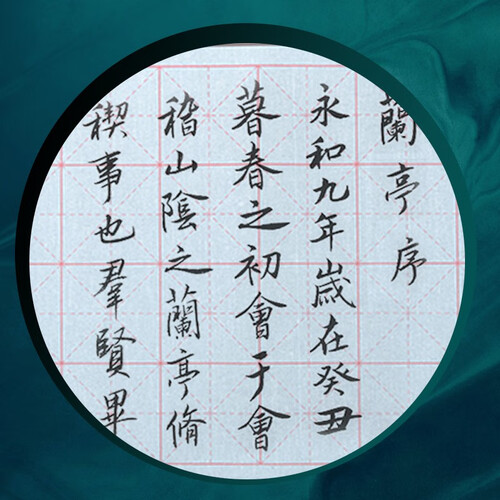 蘭亭序
永和九年歲在癸丑
暮春之初會于會
稽山陰之蘭亭脩
稧事也羣賢畢